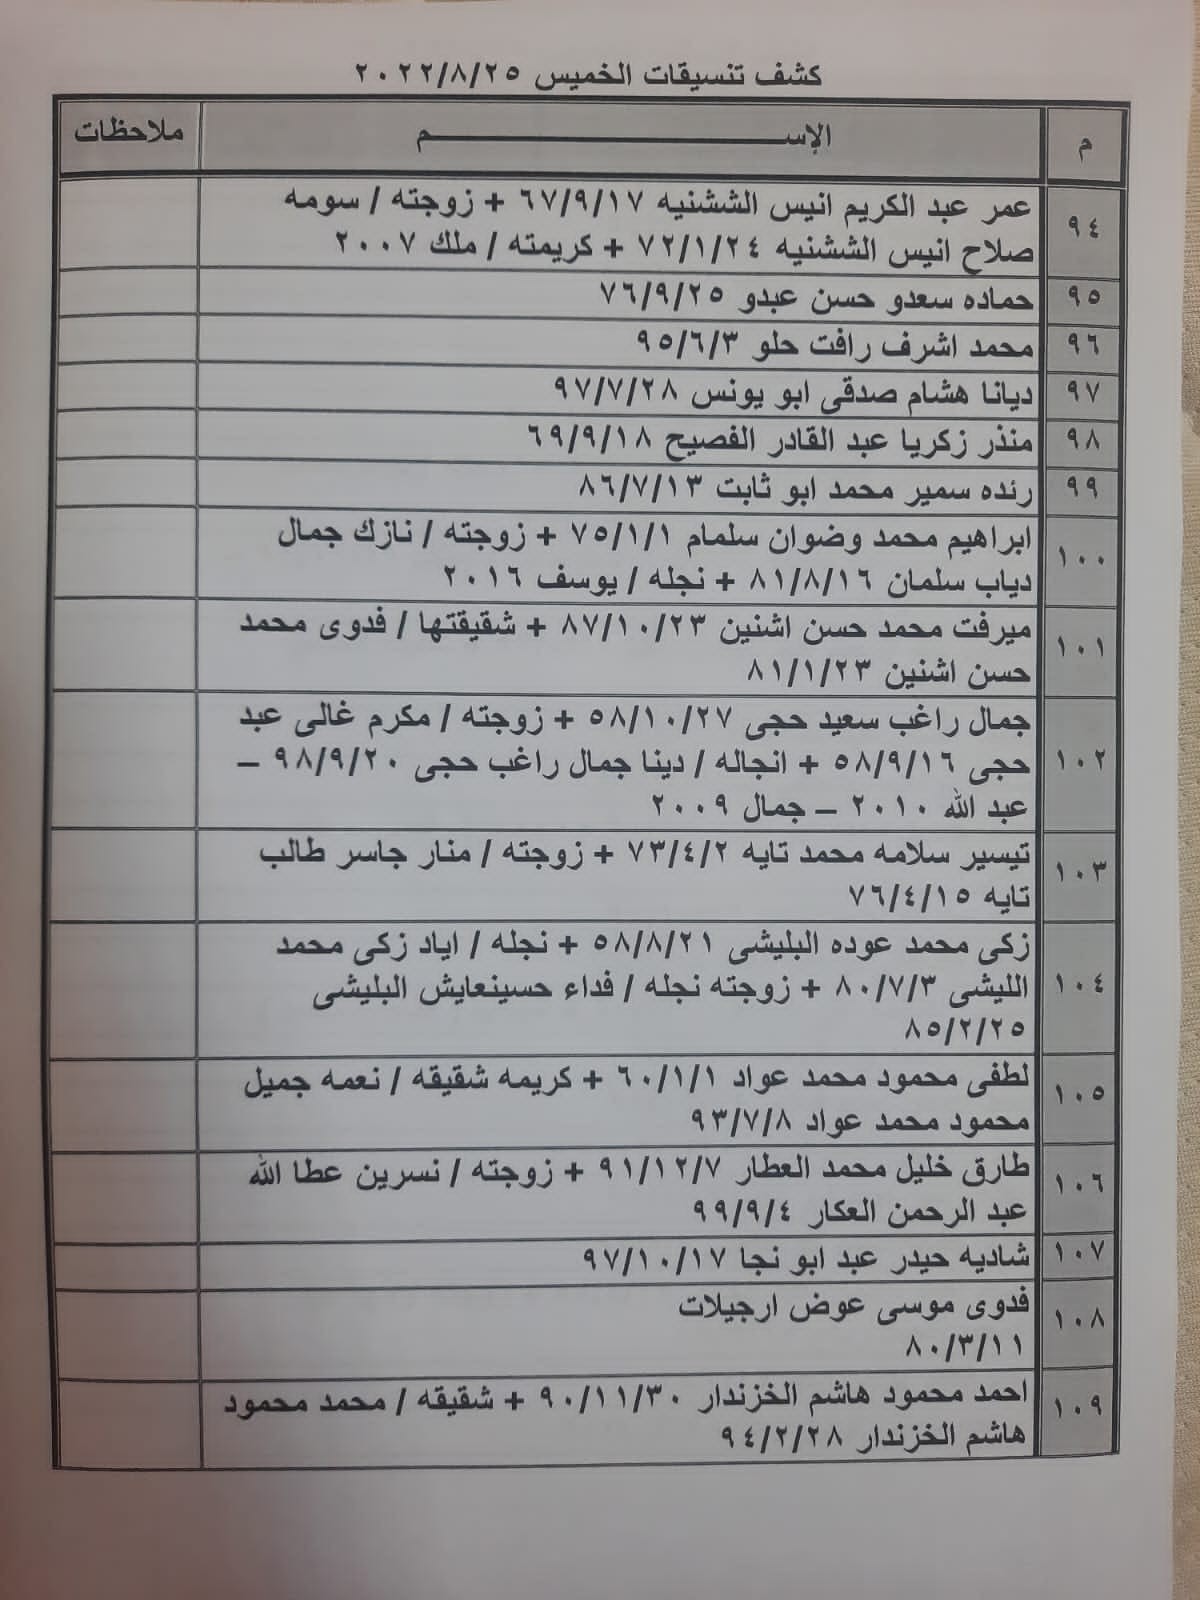 كشف تنسيقات الخميس ٢٠٢٢/٨/٢٥
م الإســـــــم ملاحظات
٩٤ عمر عبد الكريم انيس الششنيه ٦٧/٩/١٧ + زوجته / سومه
صلاح انيس الششنيه ٧٢/١/٢٤ + كريمته / ملك ٢٠٠٧
٩٥ حماده سعدو حسن عبدو ٧٦/٩/٢٥
٩٦ محمد اشرف رافت حلو ٩٥/٦/٣
٩٧ ديانا هشام صدقى ابو يونس ٩٧/٧/٢٨
٩٨ منذر زكريا عبد القادر الفصيح ٦٩/٩/١٨
٩٩ رئده سمير محمد ابو ثابت ٨٦/٧/١٣
١٠٠ ابراهيم محمد وضوان سلمام ٧٥/١/١ + زوجته / نازك جمال
دياب سلمان ٨١/٨/١٦ + نجله / يوسف ٢٠١٦
١٠١ ميرفت محمد حسن اشنين ٨٧/١٠/٢٣ + شقيقتها / فدوى محمد
حسن اشنين ٨١/١/٢٣
١٠٢ جمال راغب سعيد حجى ٥٨/١٠/٢٧ + زوجته / مكرم غالى عبد
حجى ٥٨/٩/١٦ + انجاله / دينا جمال راغب حجى ٩٨/٩/٢٠ –
عبد الله ٢٠١٠ – جمال ٢٠٠٩
١٠٣ تيسير سلامه محمد تايه ٧٣/٤/٢ + زوجته / منار جاسر طالب
تايه ٧٦/٤/١٥
١٠٤ زكى محمد عوده البليشى ٥٨/٨/٢١ + نجله / اياد زكى محمد
الليشى ٨٠/٧/٣ + زوجته نجله / فداء حسينعايش البليشى
٨٥/٢/٢٥
١٠٥ لطفى محمود محمد عواد ٦٠/١/١ + كريمه شقيقه / نعمه جميل
محمود محمد عواد ٩٣/٧/٨
١٠٦ طارق خليل محمد العطار ٩١/١٢/٧ + زوجته / نسرين عطا الله
عبد الرحمن العكار ٩٩/٩/٤
١٠٧ شاديه حيدر عبد ابو نجا ٩٧/١٠/١٧
١٠٨ فدوى موسى عوض ارجيلات
٨٠/٣/١١
١٠٩ احمد محمود هاشم الخزندار ٩٠/١١/٣٠ + شقيقه / محمد محمود
هاشم الخزندار ٩٤/٢/٢٨